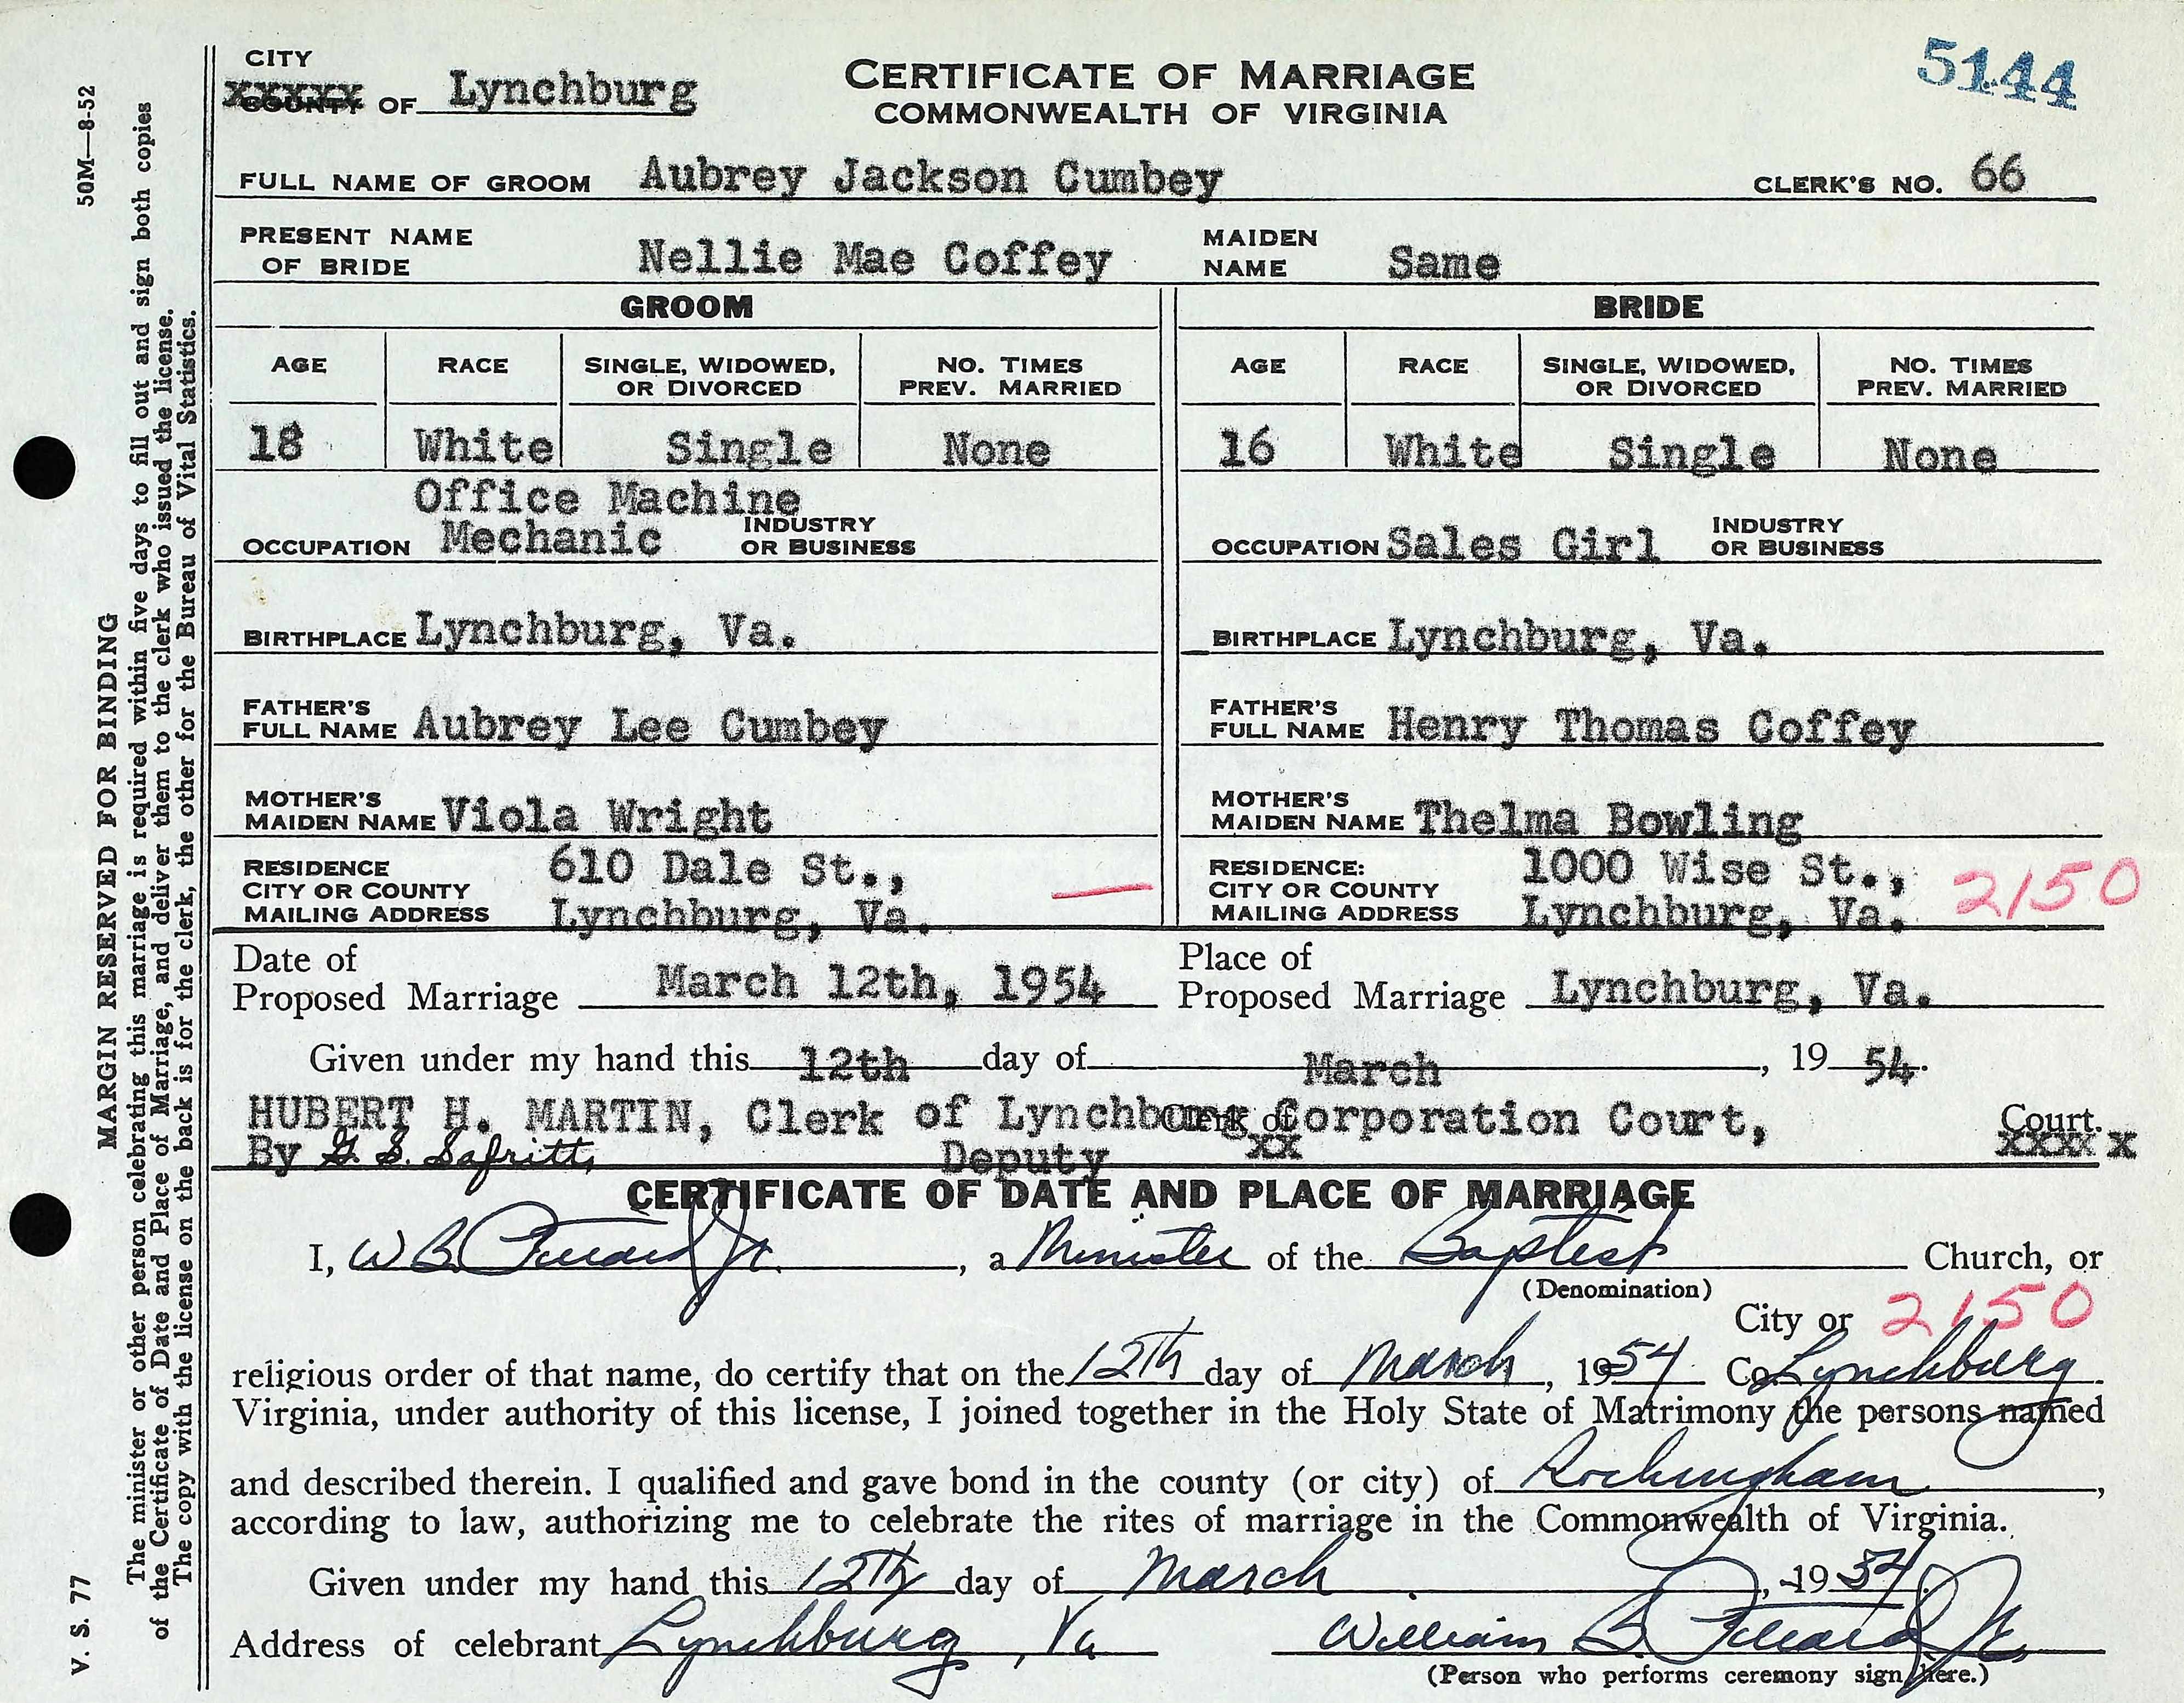 CITY
COUNTY OF Lynchburg
CERTIFICATE OF MARRIAGE
COMMONWEALTH OF VIRGINIA
5144
FULL NAME OF GROOM Aubrey Jackson Cumbey CLERK'S NO. 66
PRESENT NAME OF BRIDE Nellie Mae Coffey MAIDEN NAME Same
GROOM BRIDE
AGE RACE SINGLE, WIDOWED, OR DIVORCED NO. TIMES PREV. MARRIED AGE RACE SINGLE, WIDOWED, OR DIVORCED NO. TIMES PREV. MARRIED
18 White Single None 16 White Single None
OCCUPATION Office Machine Mechanic INDUSTRY OR BUSINESS OCCUPATION Sales Girl INDUSTRY OR BUSINESS
BIRTHPLACE Lynchburg, Va. BIRTHPLACE Lynchburg, Va.
FATHER'S FULL NAME Aubrey Lee Cumbey FATHER'S FULL NAME Henry Thomas Coffey
MOTHER'S MAIDEN NAME Viola Wright MOTHER'S MAIDEN NAME Thelma Bowling
RESIDENCE CITY OR COUNTY MAILING ADDRESS 610 Dale St., Lynchburg, Va. RESIDENCE: CITY OR COUNTY MAILING ADDRESS 1000 Wise St., Lynchburg, Va. 2150
Date of Proposed Marriage March 12th, 1954 Place of Proposed Marriage Lynchburg, Va.
Given under my hand this 12th day of March, 19 54.
HUBERT H. MARTIN, Clerk of Lynchburg Corporation Court, Clerk of Court.
By G. S. Safritt, Deputy
CERTIFICATE OF DATE AND PLACE OF MARRIAGE
I, W B Jr., a Minister of the Baptist Church, or
(Denomination)
City or 2150
religious order of that name, do certify that on the 12th day of March, 1954 Co. Lynchburg
Virginia, under authority of this license, I joined together in the Holy State of Matrimony the persons named
and described therein. I qualified and gave bond in the county (or city) of Rockingham,
according to law, authorizing me to celebrate the rites of marriage in the Commonwealth of Virginia.
Given under my hand this 12th day of March, 1954.
Address of celebrant Lynchburg, Va William B. Jr.
(Person who performs ceremony sign here.)
50M—8-52
V. S. 77
MARGIN RESERVED FOR BINDING
The minister or other person celebrating this marriage is required within five days to fill out and sign both copies
of the Certificate of Date and Place of Marriage, and deliver them to the clerk who issued the license.
The copy with the license on the back is for the clerk, the other for the Bureau of Vital Statistics.